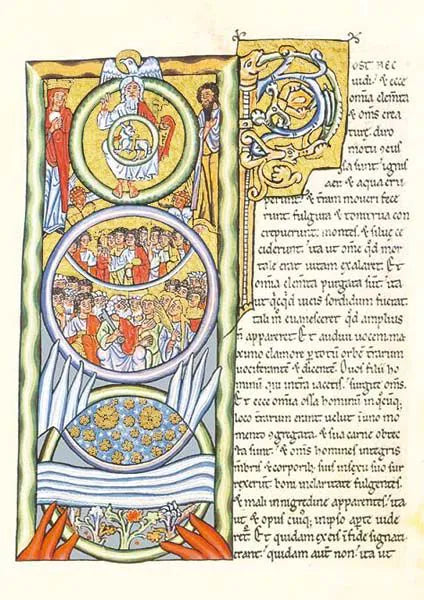 POST HEC
uidi & ecce
omīa elem̄ta
& om̄s crea
ture diro
motu
sunt ignis
aer & aqua eru
perunt & t̄ram moueri fece
runt fulgura & tonitrua con
crepuerunt. montes & silue ce
ciderunt. ita ut om̄e qd̄ mor
tale erat uitam exalaret. Et
omīa elem̄ta purgata sunt ita
ut qicqd̄ in eis sordidum fuerat
tali euanesceret qd̄ amplius
n̄ appareret. Et audiui uocem ma
ximo clamore p totū orbē t̄rarum
uociferantē & dicentē. O uos filii ho
minū qui in t̄ra iacetis. surgite om̄s.
Et ecce om̄ia ossa hominū in q̄cūq;
loco t̄rarum erant uelut in uno mo
mento & sua carne obtec
ta sunt. & om̄s homines integris
m̄bris & corporib; suis in sexu suo sur
rexerunt. boni in claritate fulgentes.
& mali in nigredine apparentes. ita
ut & opus cuiq; in ipso apte uide
ret. Et quidam ex eis in fide signati
erant. quidam aut̄ non. ita ut